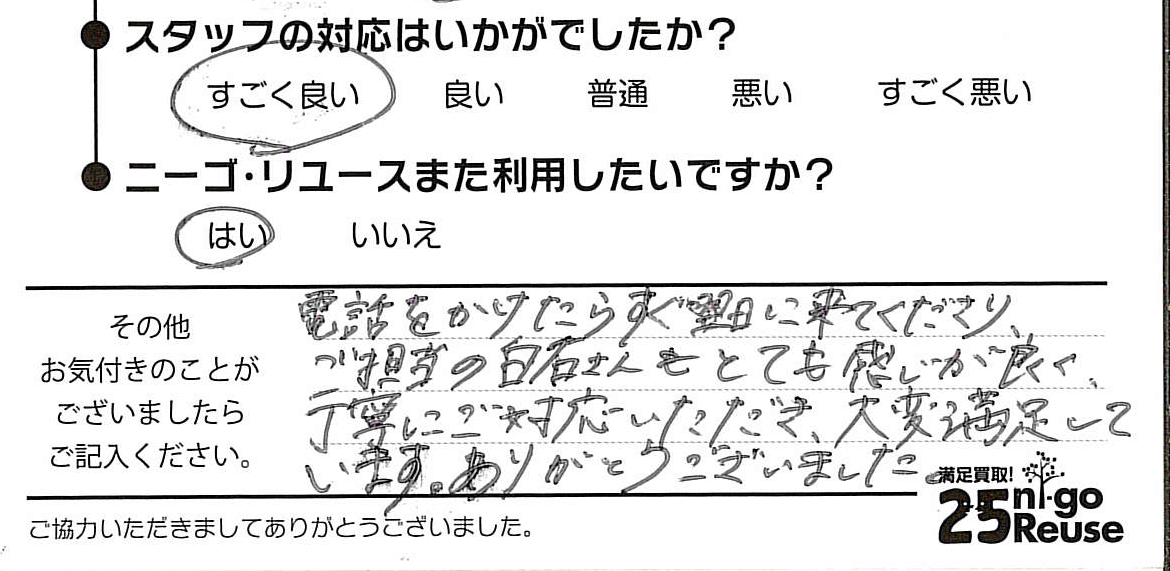 スタッフの対応はいかがでしたか？
すごく良い 良い 普通 悪い すごく悪い
ニーゴ・リユースまた利用したいですか？
はい いいえ
その他
お気付きのことが
ございましたら
ご記入ください。
電話をかけたらすぐ翌日に来てくださり、
ご担当の白石さんもとても感じが良く、
丁寧にご対応いただき、大変満足して
います。ありがとうございました。
満足買取!
25 ni-go
Reuse
ご協力いただきましてありがとうございました。